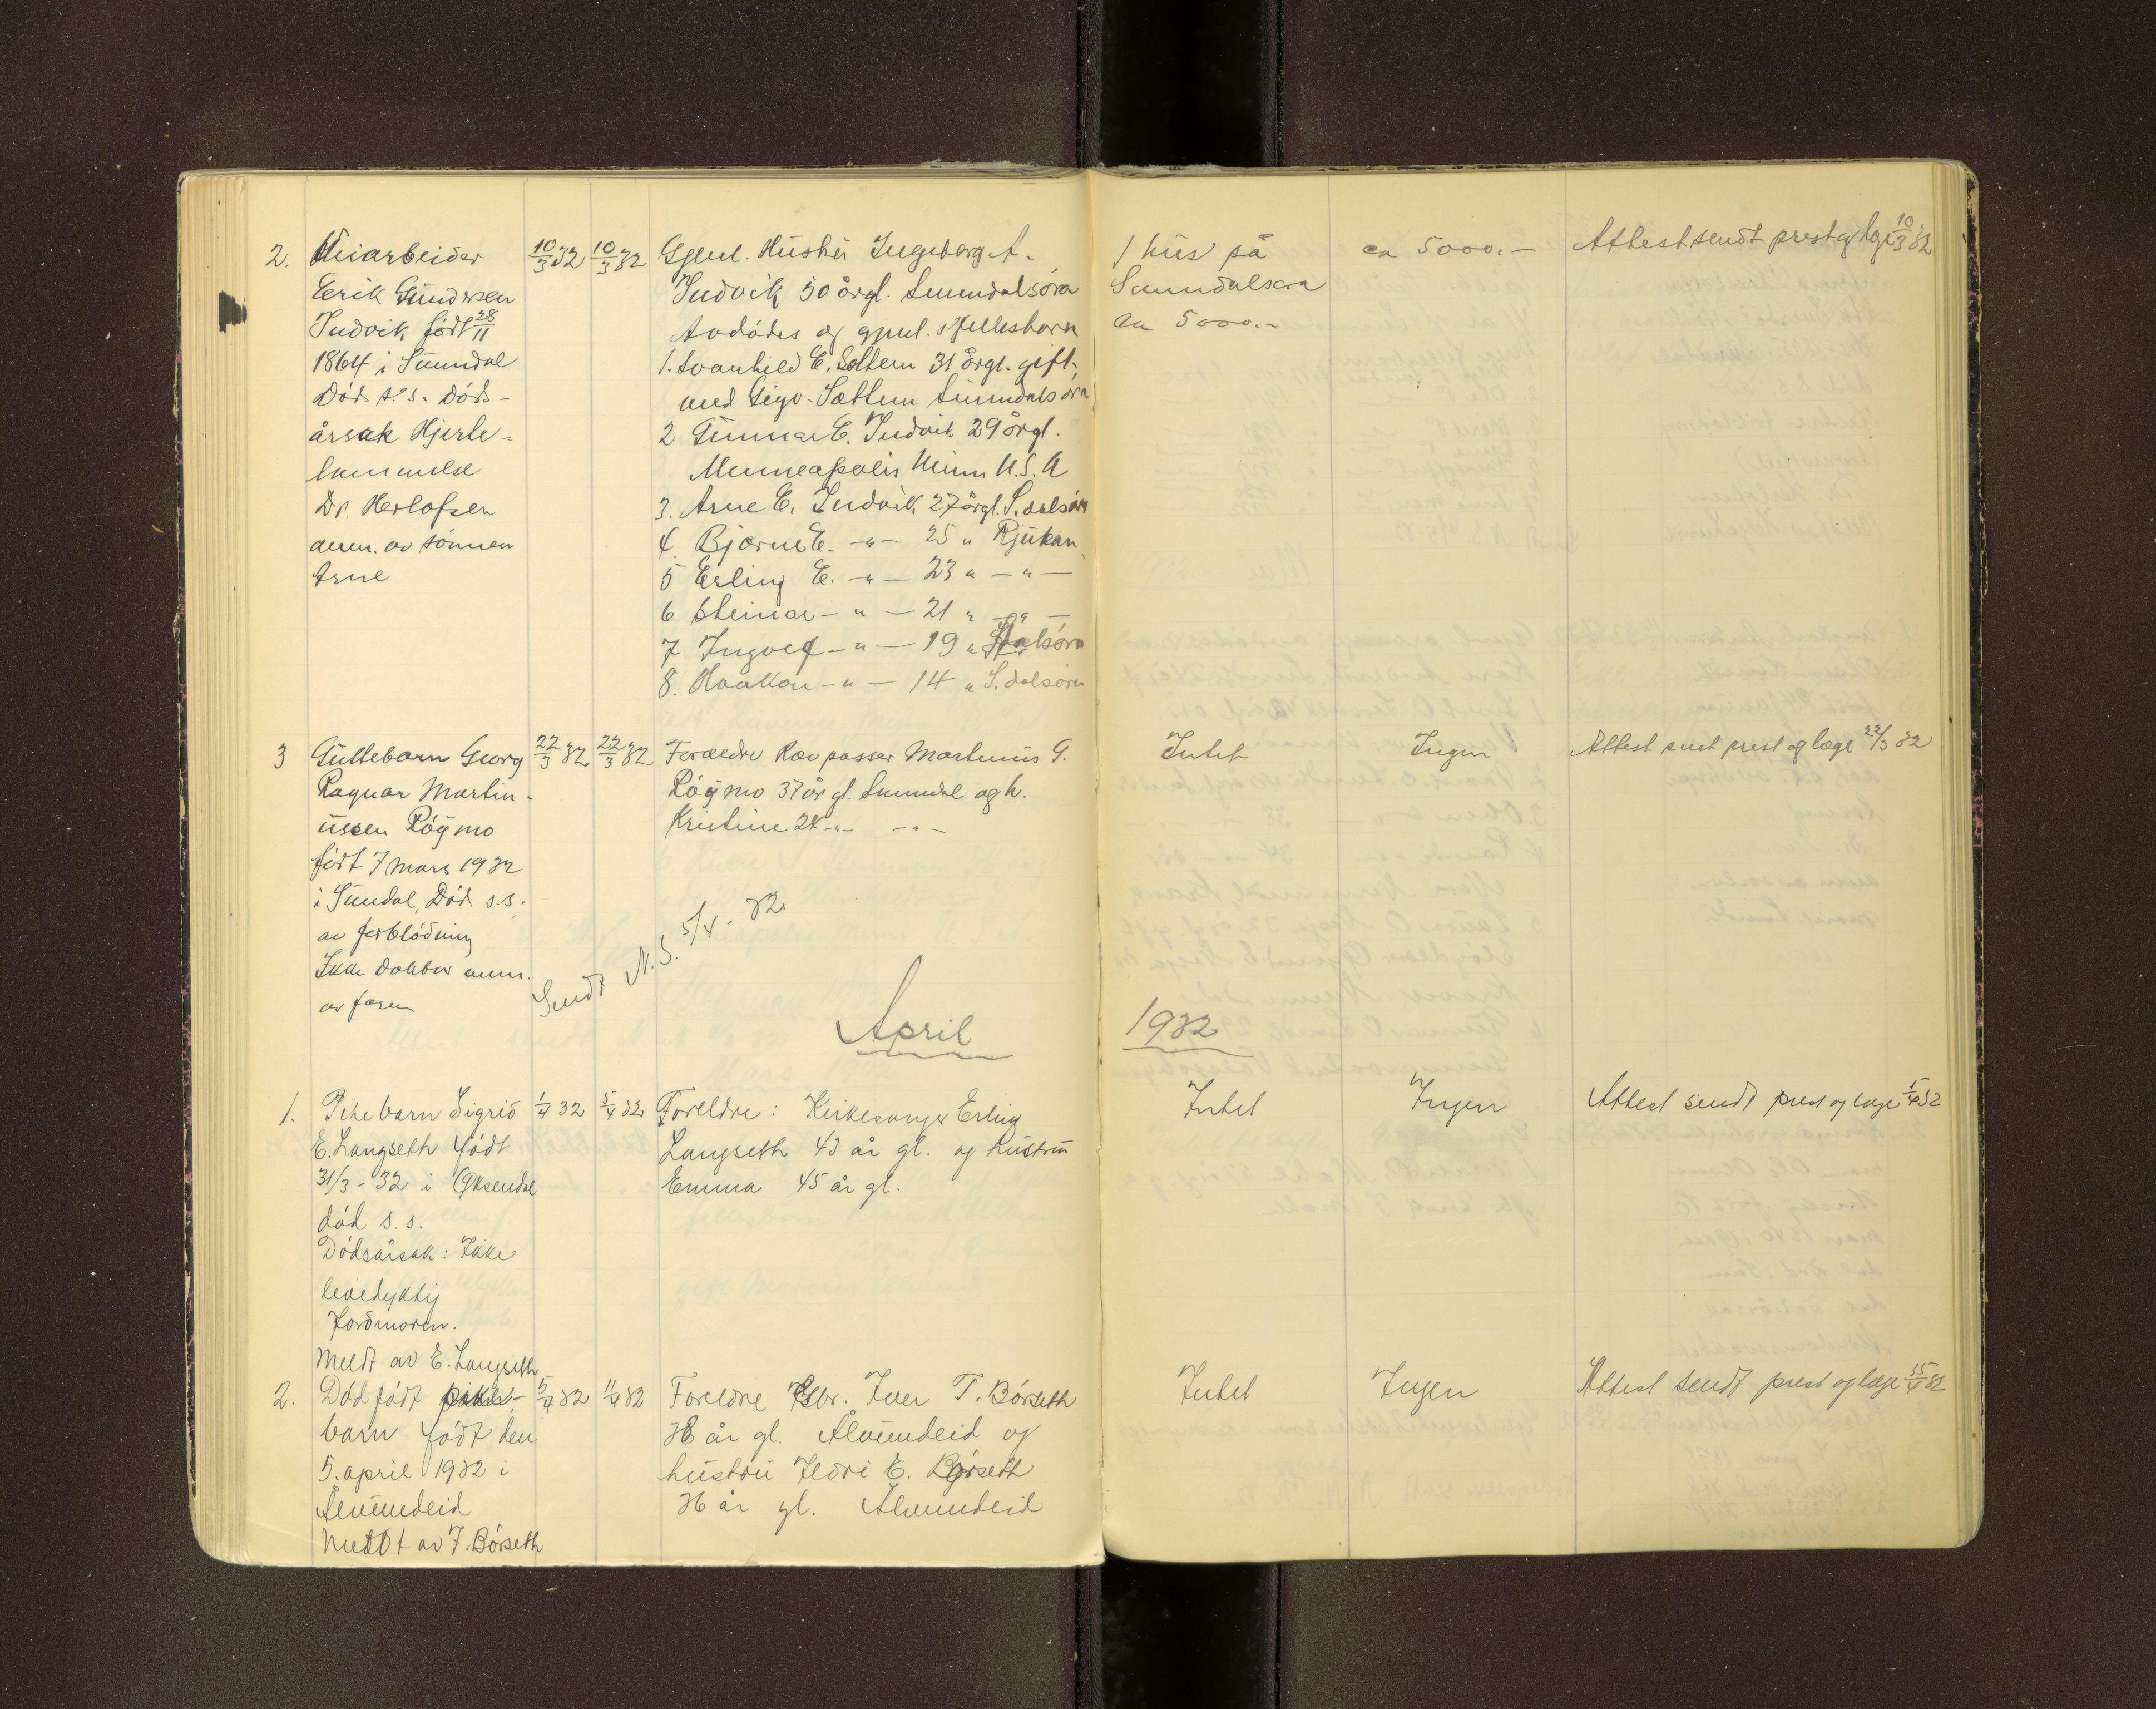 2. Veiarbeider 10/3 32 10/3 32 Gjenl. Hustru Ingeborg A. 1 hus på ca 5000.- Attest sendt prest og læge 10/3 32
Erik Gundersen Indvik 50 årgl. Sunndalsøra Sunndalsøra
Indvik født 28/11 Avdødes og gjenl. Fellesbarn ca 5000.-
1864 i Sunndal 1. Svanhild E. Settem 31 årgl. gift.
Død s.s. Døds- med Sigv. Sættem Sunndalsøra
årsak Hjerte- 2 Gunnar E. Indvik 29 årgl.
lammelse Minneapolis Minn U.S.A
Dr. Herlofsen 3. Arne E. Indvik 27 årgl. S.dalsøra
anm. av sønnen 4. Bjarne E. -"- 25 " Rjukan
Arne 5 Erling E. -"- 23 " -"-
6 Steinar -"- 21 " -"-
7 Ingolf -"- 19 " S.dalsøra
8. Haakon -"- 14 " S.dalsøra
3 Guttebarn Georg 22/3 32 22/3 32 Foreldre Rævpasser Martinus G. Intet Ingen Attest sent prest og læge 22/3 32
Ragnar Martin- Røymo 37 år gl. Sunndal og h.
ussen Røymo Kristine 24 -"- -"-
født 7 mars 1932
i Sundal, Død s.s.
av forblødning
Ikke doktor anm.
av faren
Sendt N.S. 5/4. 32.
April 1932
1. Pikebarn Sigrid 1/4 32 5/4 32 Foreldre: Kirkesanger Erling Intet Ingen Attest sendt prest og læge 1/4 32
E. Langseth født Langseth 43 år gl. og hustru
31/3 - 32 i Øksendal Emma 45 år gl.
død s.s.
Dødsårsak: Ikke
levedyktig
Jordmoren.
Meldt av E. Langseth
2. Død født pike- 5/4 32 11/4 32 Foreldre Gbr. Iver T. Børseth Intet Ingen Attest sendt prest og læge 15/4 32
barn født den 38 år gl. Ålvundeid og
5. april 1932 i hustru Ildri E. Børseth
Ålvundeid 36 år gl. Ålvundeid
Meldt av I. Børseth